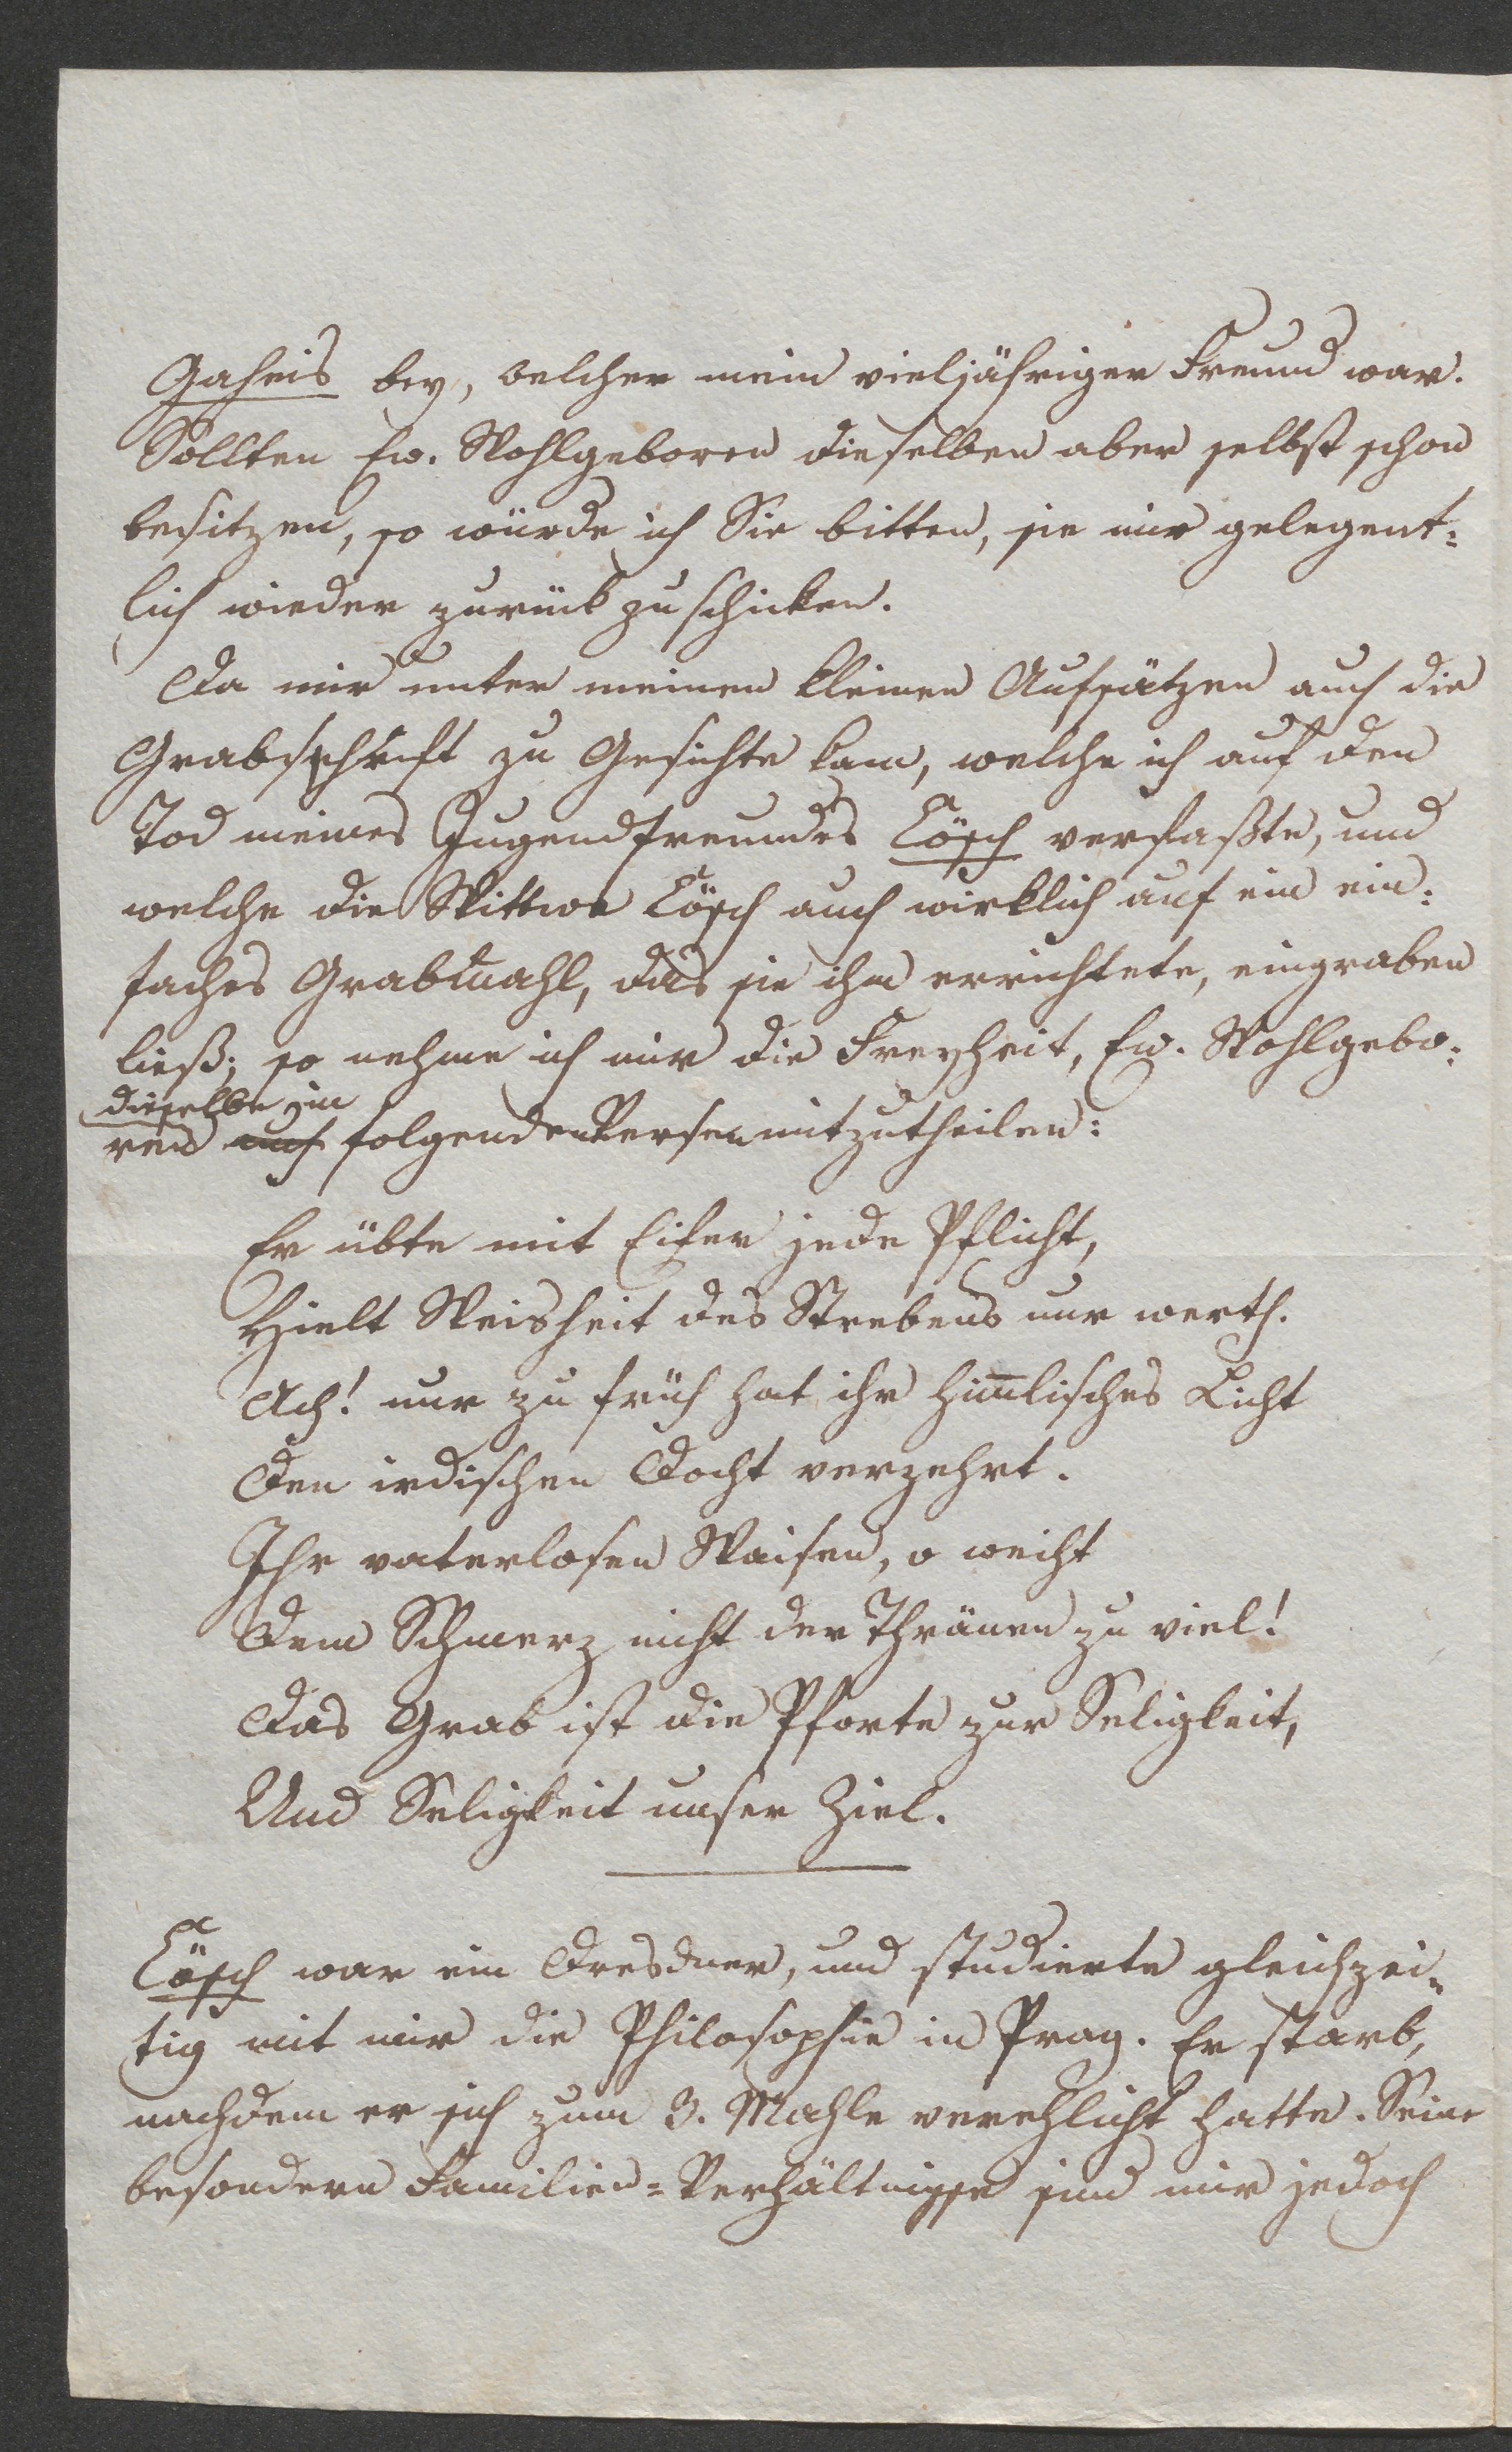 Gaheis bey, welcher mein vieljähriger Freund war.
Sollten Ew. Wohlgeboren dieselben aber selbst schon
besitzen, so würde ich Sie bitten, sie mir gelegent=
lich wieder zurück zu schicken.
Da mir unter meinen kleinen Aufsätzen auch die
Grabschrift zu Gesichte kam, welche ich auf den
Tod meines Jugendfreundes Lösch verfaßte, und
welche die Wittwe Lösch auch wirklich auf ein ein=
faches Grabmahl, das sie ihm errichtete, eingraben
ließ; so nehme ich mir die Freyheit, Ew. Wohlgebo=
dieselbe in
ren auch folgenden Versen mitzutheilen:
Er übte mit Eifer jede Pflicht,
Hielt Weisheit des Strebens nur werth.
Ach! nur zu früh hat ihr him̅lisches Licht
Den irdischen Docht verzehrt.
Ihr vaterlosen Waisen, o weiht
Dem Schmerz nicht der Thränen zu viel!
Das Grab ist die Pforte zur Seligkeit,
Und Seligkeit unser Ziel.
Lösch war ein Dresdner, und studierte gleichzei=
tig mit mir die Philosophie in Prag. Er starb,
nachdem er sich zum 3. Mahle verehlicht hatte. Seine
besondern Familien=Verhältnisse sind mir jedoch